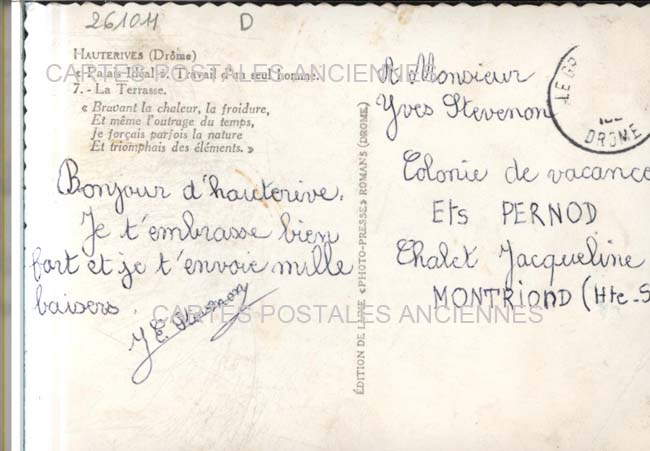 261011 D
HAUTERIVES (Drôme)
« Palais Idéal ». Travail d'un seul homme.
7. - La Terrasse.
« Bravant la chaleur, la froidure,
Et même l'outrage du temps,
Je forçais parfois la nature
Et triomphais des éléments. »
CARTES POSTALES ANCIENNES
Bonjour d'hauterive.
Je t'embrasse bien
fort et je t'envoie mille
baisers.
Stevenon
CARTES POSTALES ANCIENNES
ÉDITION DE LUXE «PHOTO-PRESSE» ROMANS (DROME)
A Monsieur
Yves Stevenon
Colonie de vacance
Ets PERNOD
Chalet Jacqueline
MONTRIOND (Hte-S
DROME